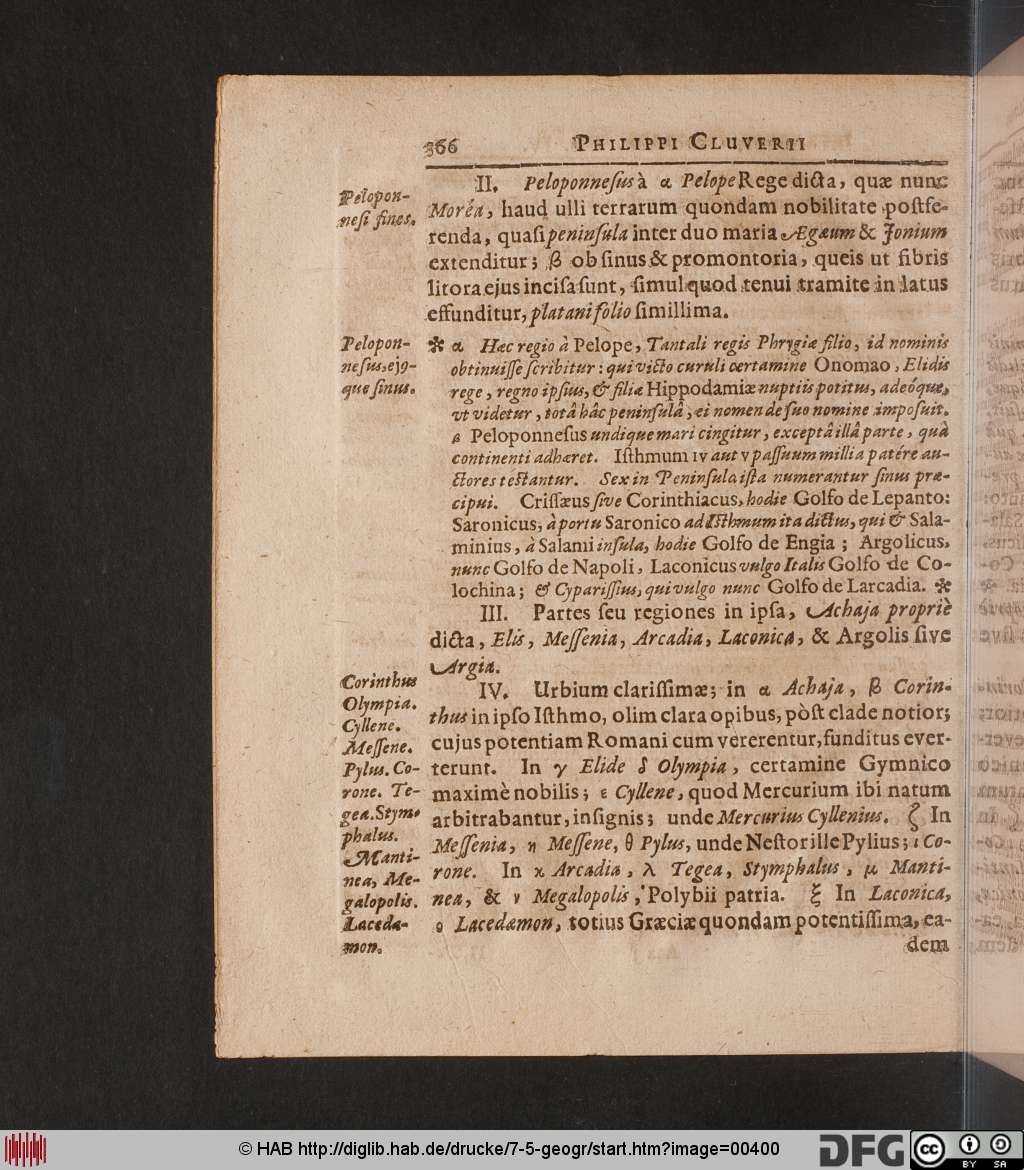 366 PHILIPPI CLUVERII
Pelopon-
nesi fines.
II. Peloponnesus à α Pelope Rege dicta, quæ nunc
Moréa, haud ulli terrarum quondam nobilitate postfe-
renda, quasi peninsula inter duo maria Ægæum & Jonium
extenditur; β ob sinus & promontoria, queis ut fibris
litora ejus incisa sunt, simul quod tenui tramite in latus
effunditur, platani folio simillima.
Pelopon-
nesus, ejq-
que sinus.
✻ α Hæc regio à Pelope, Tantali regis Phrygiæ filio, id nominis
obtinuisse scribitur: qui victo curuli certamine Onomao, Elidis
rege, regno ipsius, & filiæ Hippodamiæ nuptiis potitus, adeóque,
vt videtur, totâ hâc peninsulâ, ei nomen de suo nomine imposuit.
β Peloponnesus undique mari cingitur, exceptâ illâ parte, quà
continenti adhæret. Isthmum IV aut V passuum millia patére au-
ctores testantur. Sex in Peninsula ista numerantur sinus præ-
cipui. Crissæus sive Corinthiacus, hodie Golfo de Lepanto:
Saronicus, à portu Saronico ad Isthmum ita dictus, qui & Sala-
minius, à Salami insula, hodie Golfo de Engia; Argolicus,
nunc Golfo de Napoli, Laconicus vulgo Italis Golfo de Co-
lochina; & Cyparissius, qui vulgo nunc Golfo de Larcadia. ✻
III. Partes seu regiones in ipsa, Achaja propriè
dicta, Elis, Messenia, Arcadia, Laconica, & Argolis sive
Argia.
Corinthus
Olympia.
Cyllene.
Messene.
Pylus. Co-
rone. Te-
gea. Stym-
phalus.
Manti-
nea, Me-
galopolis.
Lacedæ-
mon.
IV. Urbium clarissimæ; in α Achaja, β Corin-
thus in ipso Isthmo, olim clara opibus, pòst clade notior;
cujus potentiam Romani cum vererentur, funditus ever-
terunt. In γ Elide δ Olympia, certamine Gymnico
maximè nobilis; ε Cyllene, quod Mercurium ibi natum
arbitrabantur, insignis; unde Mercurius Cyllenius. ζ In
Messenia, η Messene, θ Pylus, unde Nestor ille Pylius; ι Co-
rone. In κ Arcadia, λ Tegea, Stymphalus, μ Manti-
nea, & ν Megalopolis, Polybii patria. ξ In Laconica,
ο Lacedæmon, totius Græciæ quondam potentissima, ea-
dem
© HAB http://diglib.hab.de/drucke/7-5-geogr/start.htm?image=00400
DFG
cc BY SA